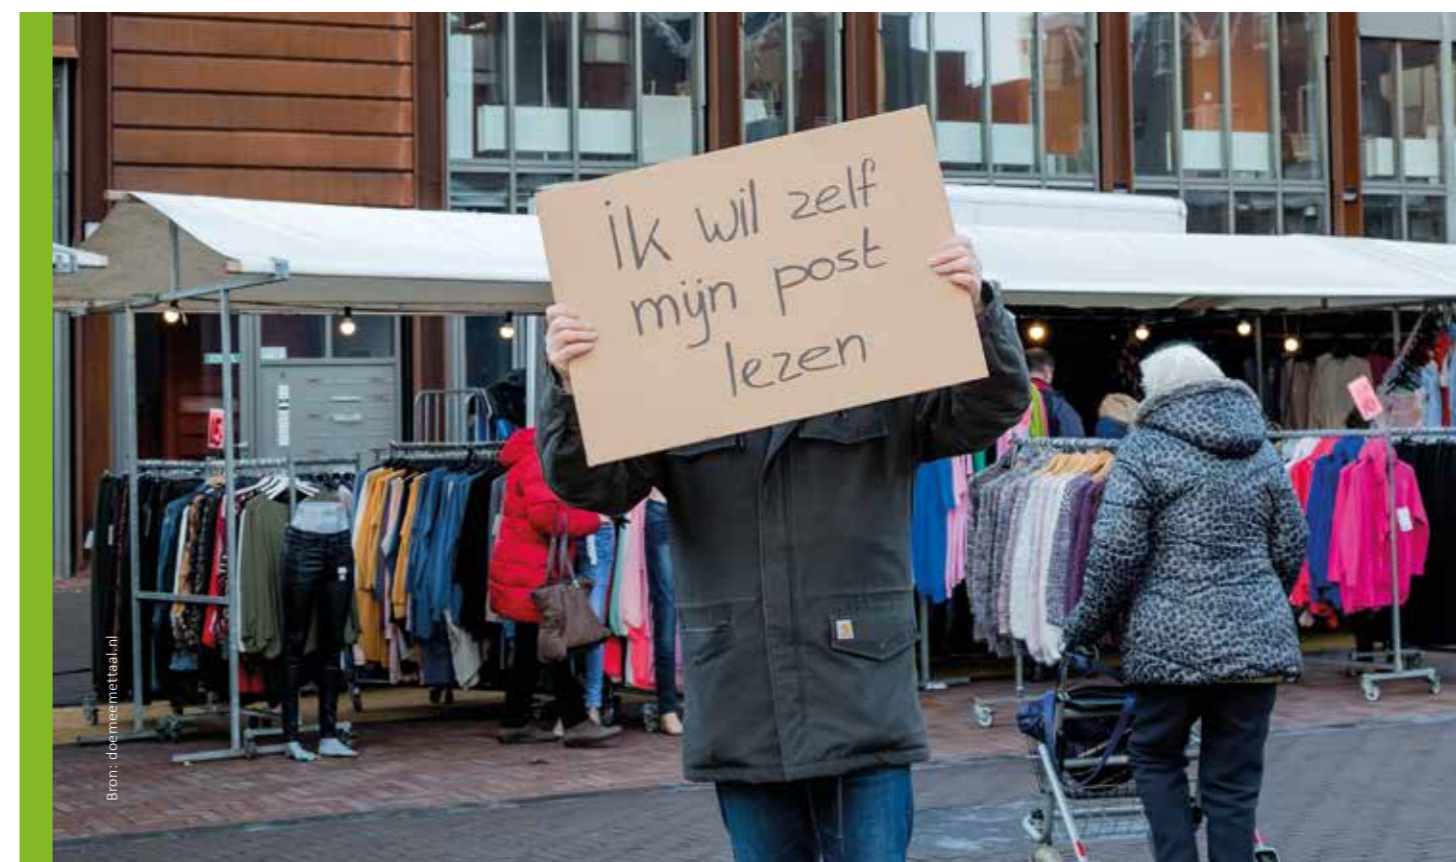 ik wil zelf
mijn post
lezen
Bron: doemeemettaal.nl